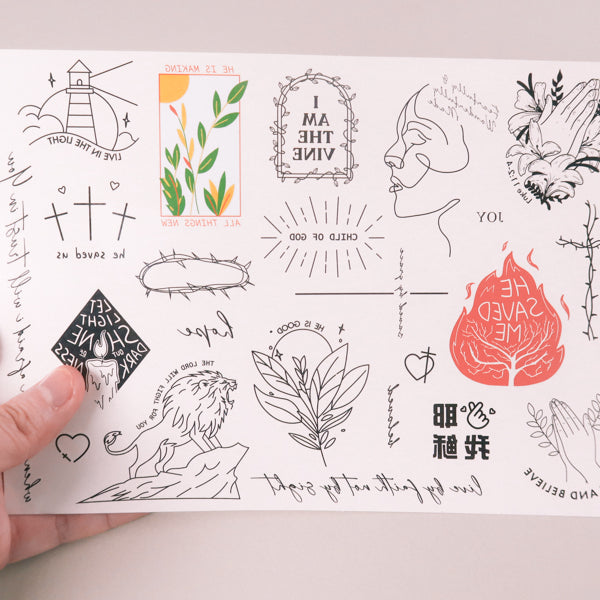 LIVE IN THE LIGHT
HE IS MAKING
ALL THINGS NEW
I
AM
THE
VINE
Fearfully &
Wonderfully
Made
JOY
he saved us
CHILD OF GOD
LET
LIGHT
SHINE
OUT OF
DARKNESS
hope
HE IS GOOD
HE
SAVED
ME
THE LORD WILL FIGHT FOR YOU
耶穌
我
AND BELIEVE
live by faith not by sight